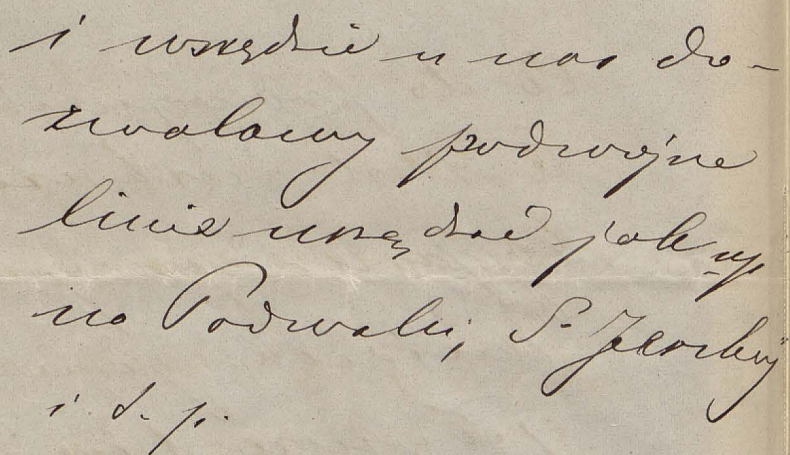 i wszędzie u nas do-
zwalamy podwójne
linie urządzać jak np
na Podwalu, S. Jerskiej
i. t. p.